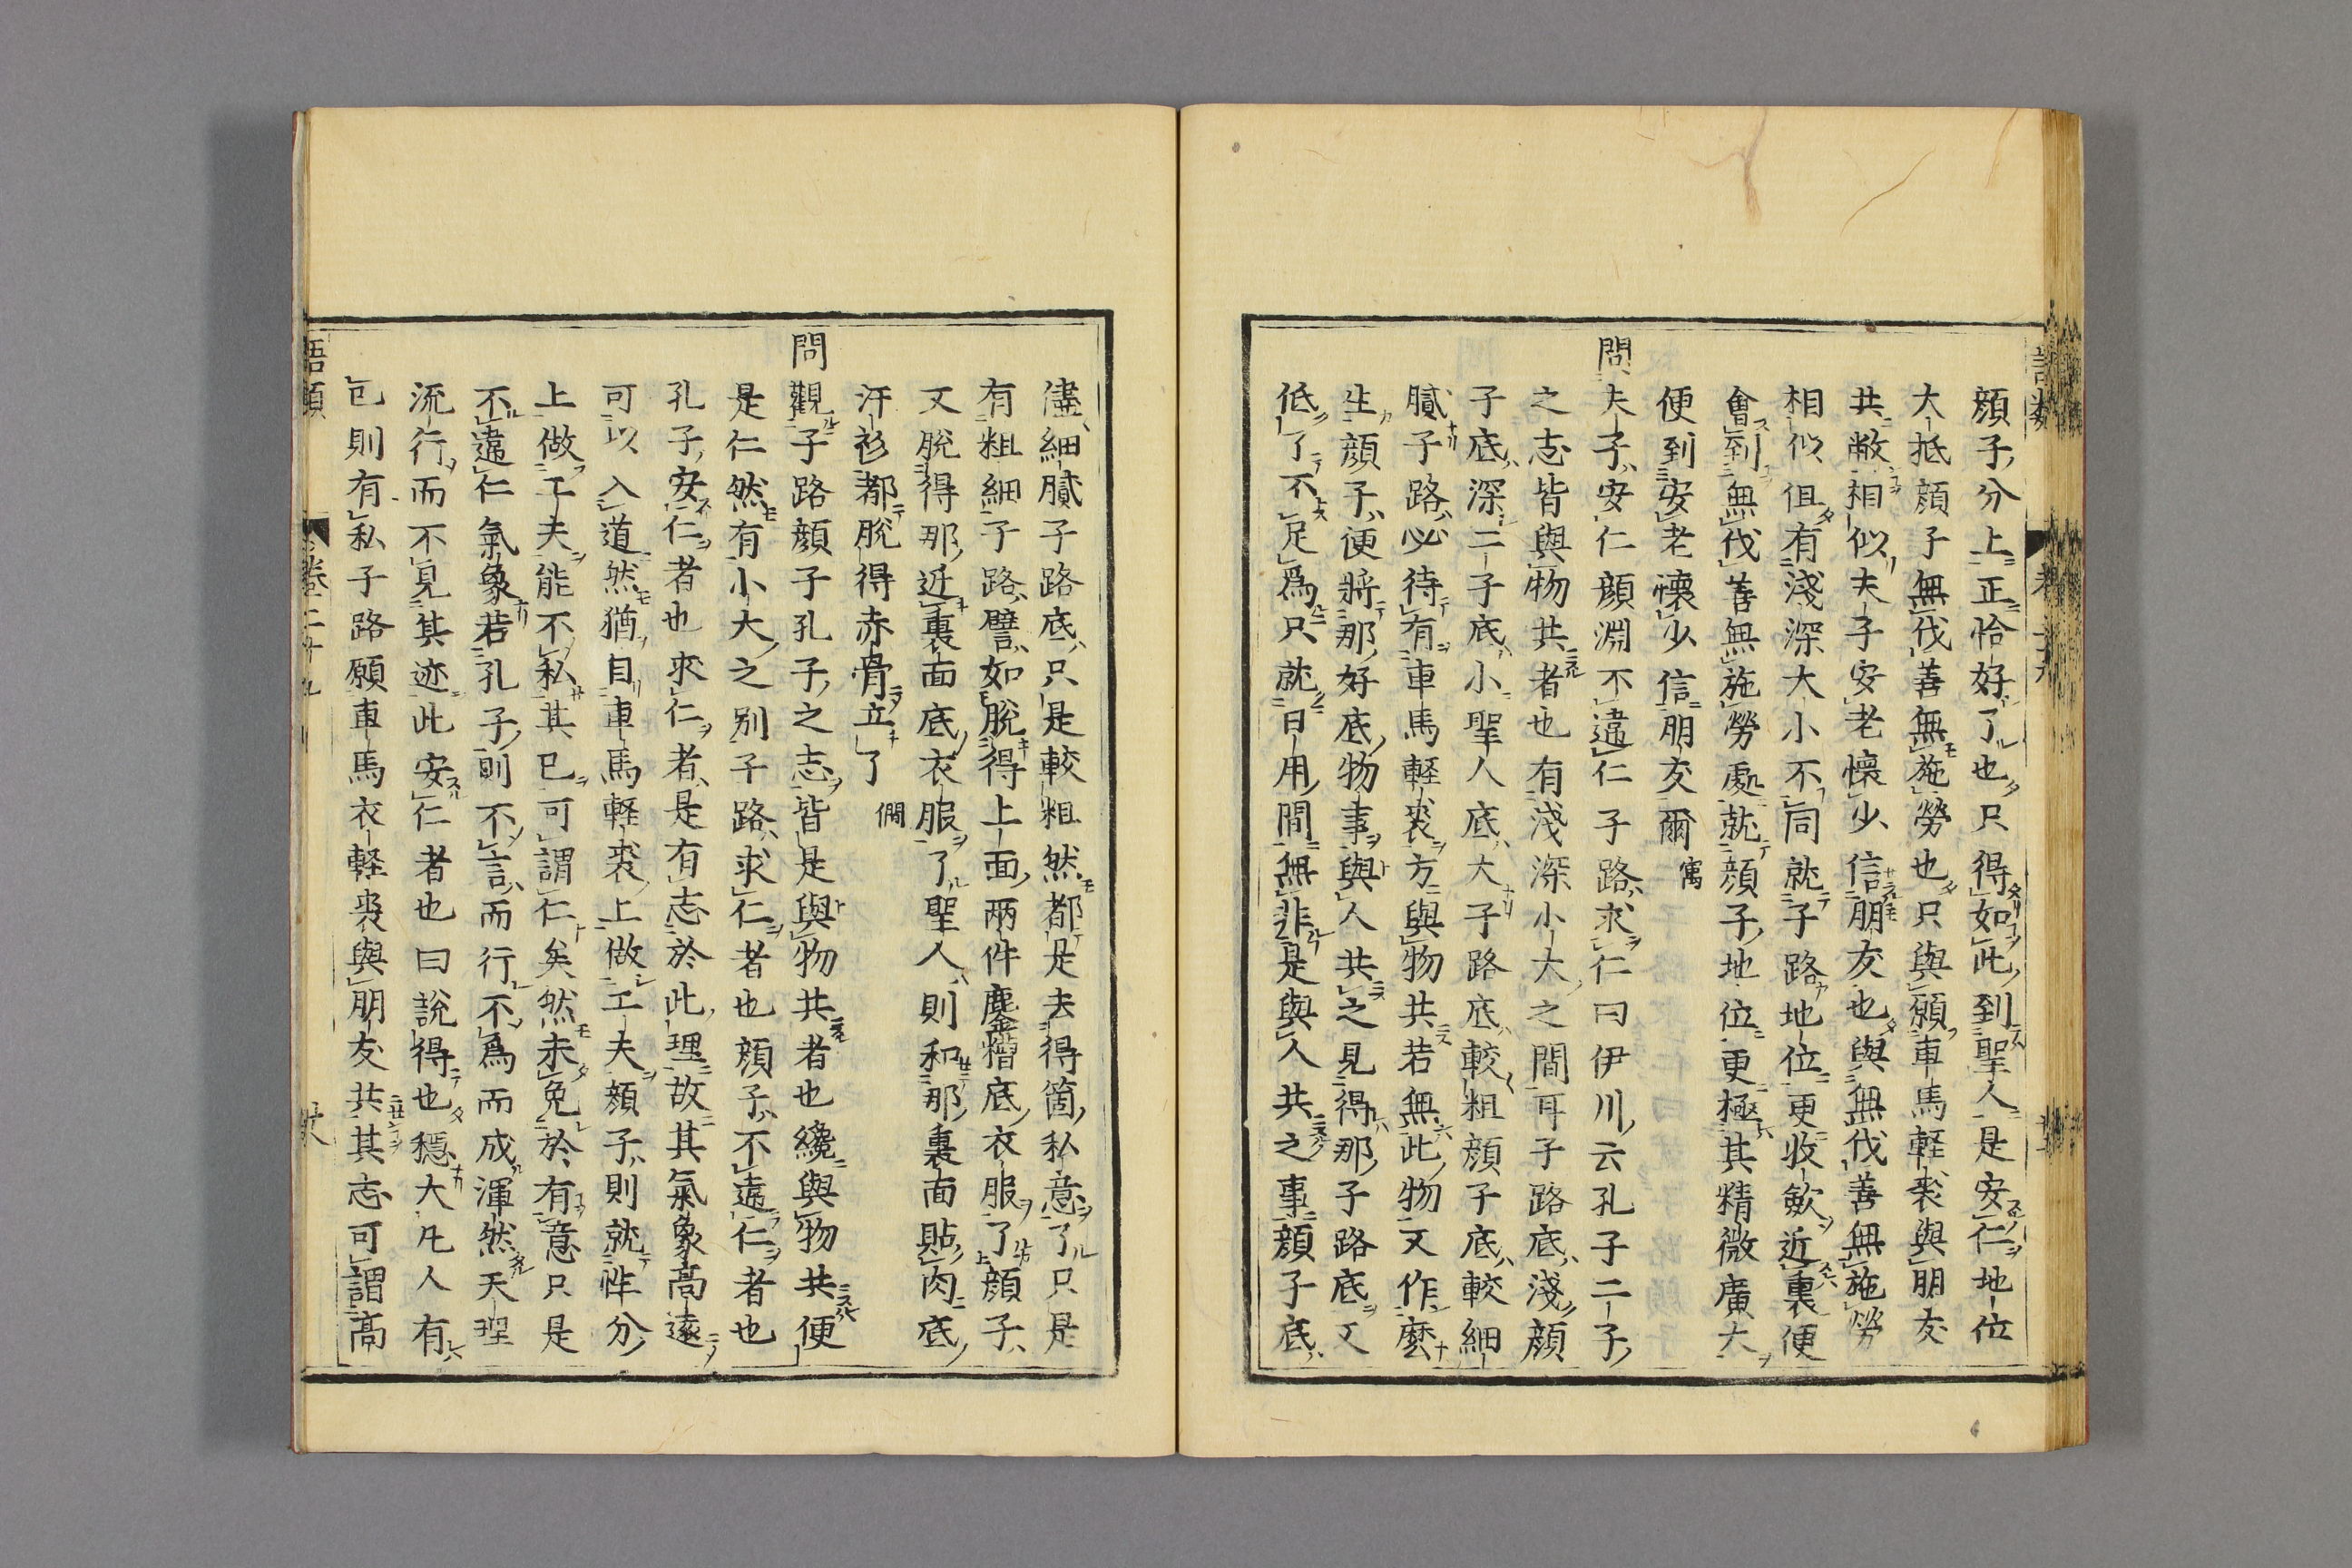 顔子分上正恰好了也只得如此到聖人是安仁地位
大抵顔子無伐善無施勞也只與願車馬軽裘與朋友
共敝相似夫子安老懷少信朋友也與無伐善無施勞
相似但有淺深大小不同就子路地位更收斂近裏便
會到無伐善無施勞處就顔子地位更極其精微廣大
便到安老懷少信朋友爾 㝢
問夫子安仁顔淵不違仁子路求仁曰伊川云孔子二子
之志皆與物共者也有淺深小大之間耳子路底淺顔
子底深二子底小聖人底大子路底較粗顔子底較細
膩子路必待有車馬軽裘方與物共若無此物又作麼
生顔子便將那好底物事與人共之見得那子路底又
低了不足爲只就日用間無非是與人共之事顔子底
儘細膩子路底只是較粗然都是去得箇私意了只是
有粗細子路譬如脫得上面兩件鏖糟底衣服了顔子
又脫得那近裏面底衣服了聖人則和那裏面貼肉底
汗衫都脫得赤骨立了 僩
問觀子路顔子孔子之志皆是與物共者也纔與物共便
是仁然有小大之別子路求仁者也顔子不違仁者也
孔子安仁者也求仁者是有志於此理故其氣象高遠
可以入道然猶自車馬軽裘上做工夫顔子則就性分
上做工夫能不私其已可謂仁矣然未免於有意只是
不違仁氣象若孔子則不言而行不爲而成渾然天理
流行而不見其迹此安仁者也曰說得也穩大凡人有
已則有私子路願車馬衣軽裘與朋友共其志可謂高
語類 卷二十九